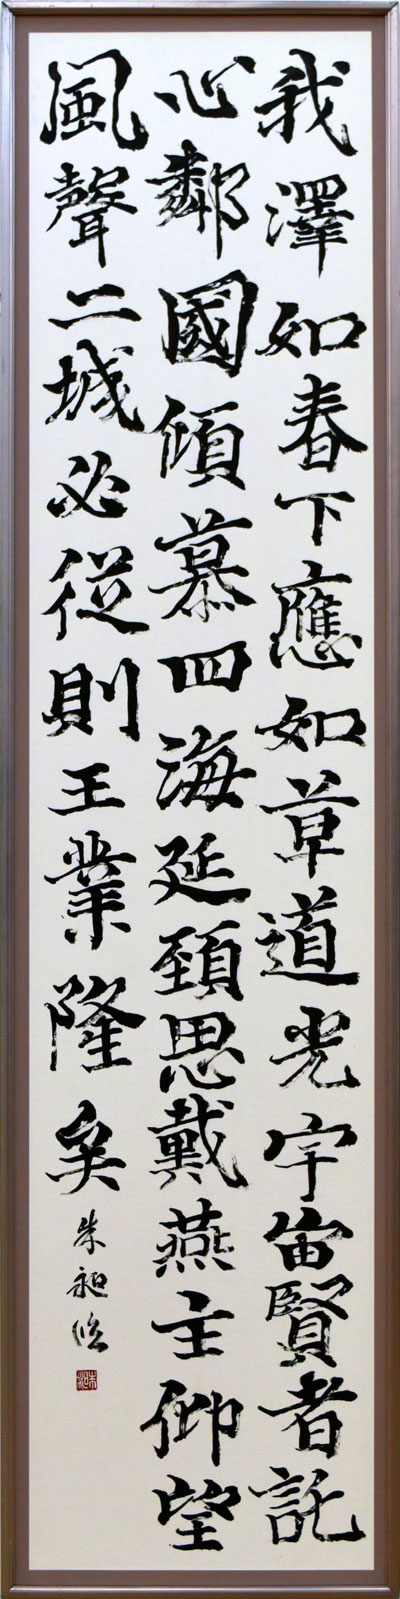 我澤如春下應如草道光宇宙賢者託
心鄰國傾慕四海延頸思戴燕主仰望
風聲二城必從則王業隆矣
朱昶臨